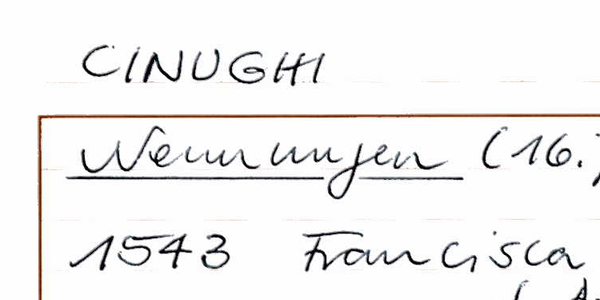 CINUGHI
Nennungen (16.)
1543 Francisca